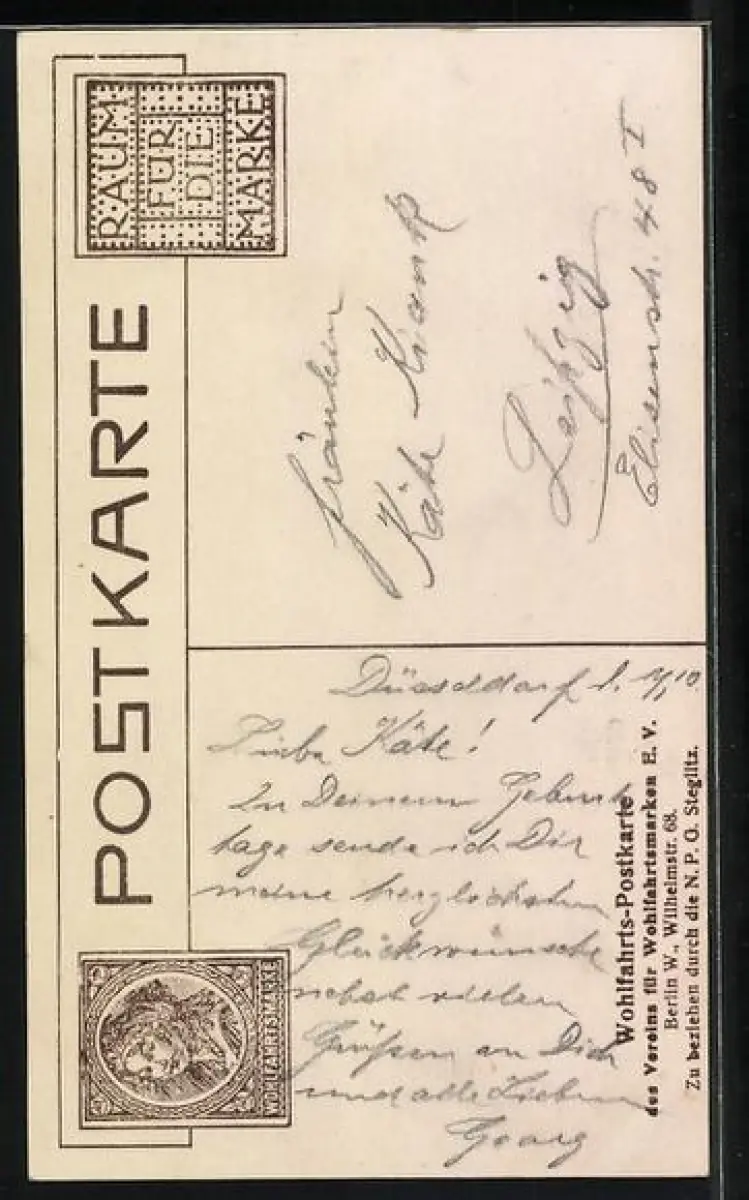 POSTKARTE
RAUM
FÜR
DIE
MARKE
WOHLFAHRTSMARKE
Fräulein
Käte
Leipzig
Elisenstr. 48 I
Düsseldorf d.
Liebe Käte!
Zu Deinem Geburts
tage sende ich Dir
meine herzlichsten
Glückwünsche
nebst vielen
Grüßen an Dich
und alle Lieben
Georg
Wohlfahrts-Postkarte
des Vereins für Wohlfahrtsmarken E. V.
Berlin W., Wilhelmstr. 68.
Zu beziehen durch die N. P. G. Steglitz.